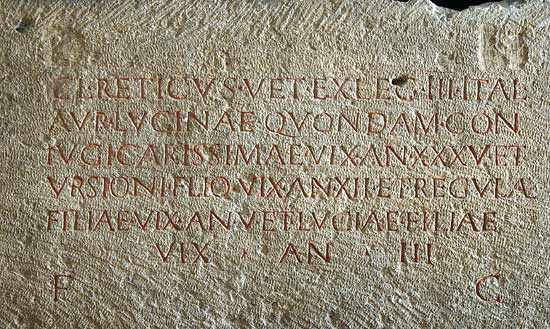 CL·RETICVS·VET EX LEG·III·ITAL
AVR·LVCINAE QVONDAM·CON
IVGI CARISSIMAE VIX·AN·XXXV ET
VRSIONI FILIO·VIX·AN·XII·ET REGVLÆ
FILIAE·VIX·AN·V ET LVCIAE·FILIAE
VIX · AN · III
F C